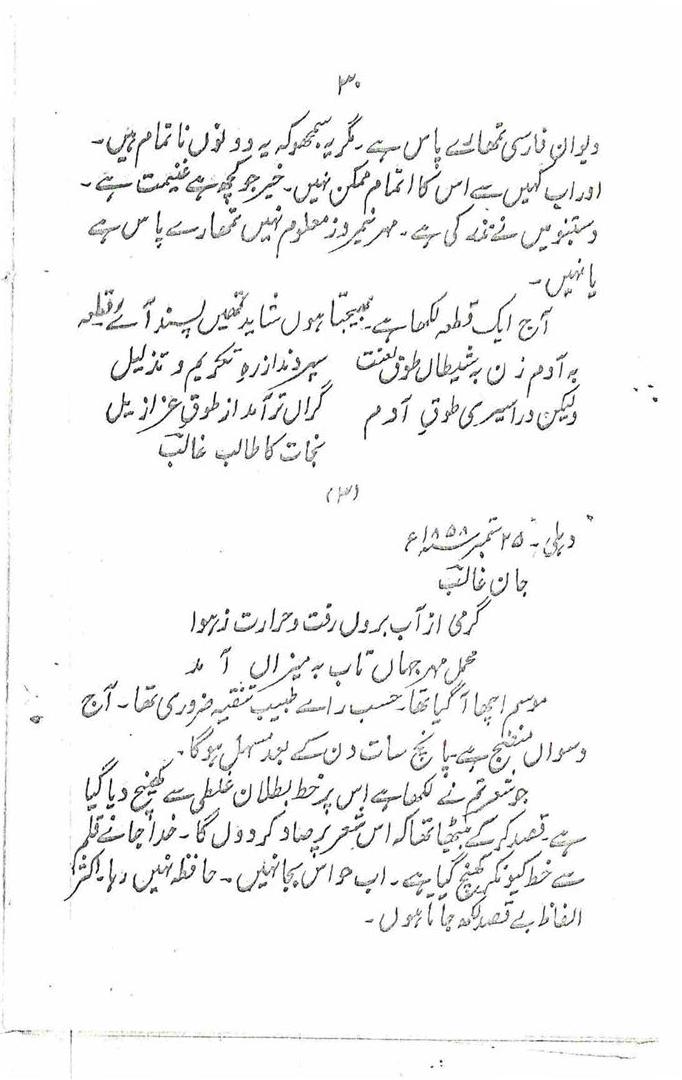 ۳۰
دیوان فارسی تمھارے پاس ہے۔ مگر یہ سمجھو کہ یہ دونوں ناتمام ہیں۔
اور اب کہیں سے اس کا اتمام ممکن نہیں۔ خیر جو کچھ ہے غنیمت ہے۔
دستنبو میں نے نذر کی ہے۔ مہر نیمروز معلوم نہیں تمھارے پاس ہے
یا نہیں۔
آج ایک قطعہ لکھا ہے۔ بھیجتا ہوں شاید تمھیں پسند آے۔ قطعہ
بہ آدم زن بہ شیطاں طوق لعنت سپردند از رہِ تکریم و تذلیل
ولیکن در اسیری طوقِ آدم گراں تر آمد از طوقِ عزازیل
نجات کا طالب غالبؔ
(۳)
دہلی۔ ۲۵ ستمبر ۱۸۵۸ء
جان غالبؔ
گرمی از آب بروں رفت و حرارت ز ہوا
محمل مہر جہاں تاب بہ میزاں آمد
موسم اچھا آ گیا تھا۔ حسب راے طبیب تنقیہ ضروری تھا۔ آج
دسواں منضج ہے۔ پانچ سات دن کے بعد مسہل ہوگا۔
جو شعر تم نے لکھا ہے اس پر خط بطلان غلطی سے کھنچ دیا گیا
ہے۔ قصد کر کے بیٹھا تھا کہ اس شعر پر صاد کردوں گا۔ خدا جانے قلم
سے خط کیونکر کھنچ گیا ہے۔ اب حواس بجا نہیں۔ حافظہ نہیں رہا۔ اکثر
الفاظ بے قصد لکھ جاتا ہوں۔